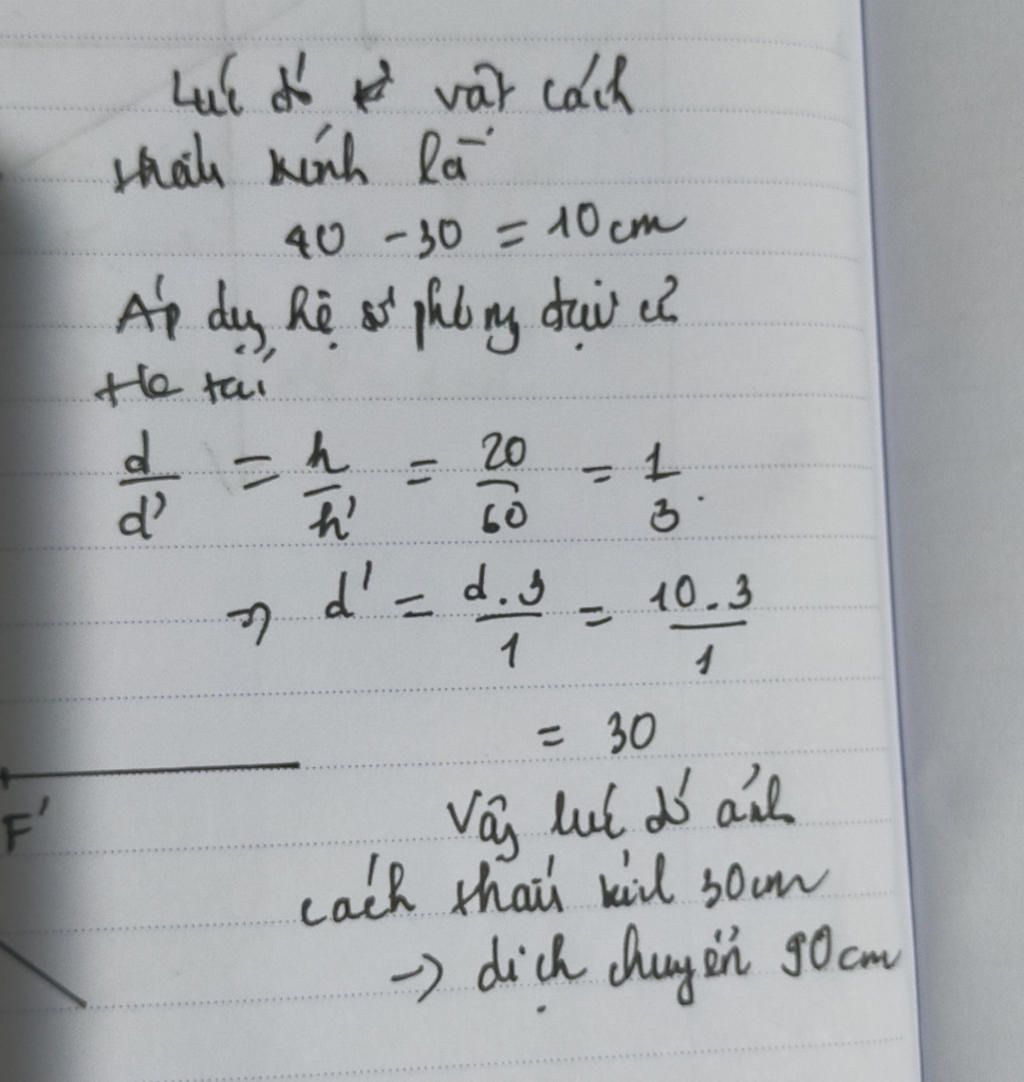 Lúc đó vật cách
thấu kính là
40 - 30 = 10 cm
Áp dụng hệ số phóng đại có
d/d' = h/h' = 20/60 = 1/3.
=> d' = d.3/1 = 10.3/1
= 30
Vậy lúc đó ảnh
F'
cách thấu kính 30cm
-> dịch chuyển 90cm